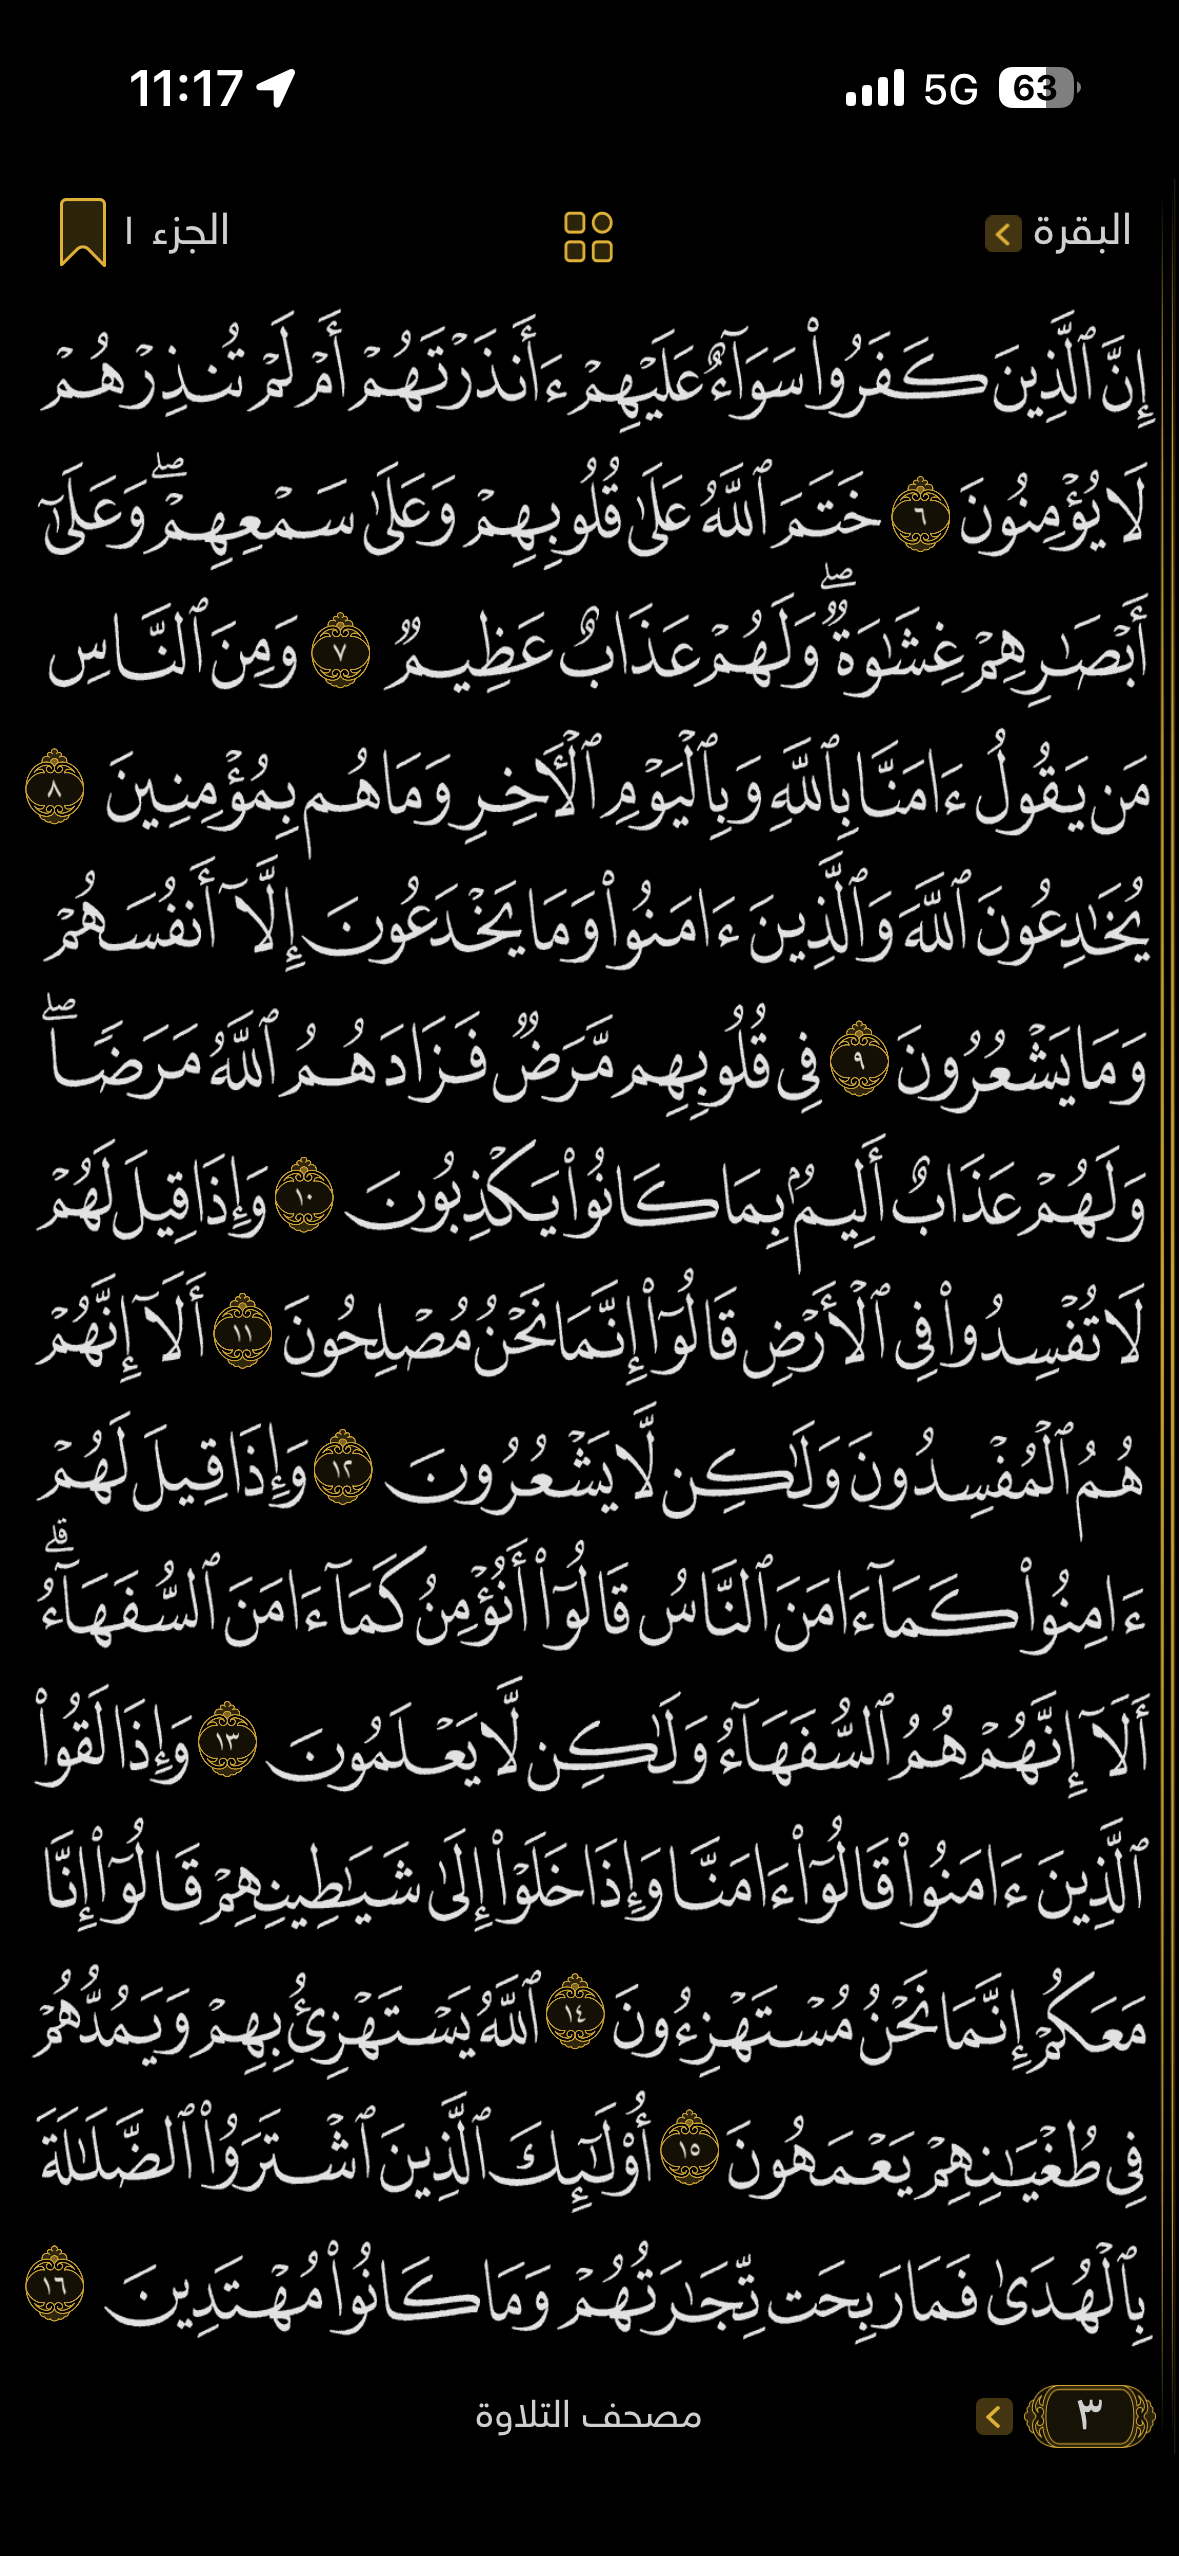 11:17 5G 63
البقرة الجزء ١
إِنَّ ٱلَّذِينَ كَفَرُوا۟ سَوَآءٌ عَلَيْهِمْ ءَأَنذَرْتَهُمْ أَمْ لَمْ تُنذِرْهُمْ
لَا يُؤْمِنُونَ ٦ خَتَمَ ٱللَّهُ عَلَىٰ قُلُوبِهِمْ وَعَلَىٰ سَمْعِهِمْ ۖ وَعَلَىٰٓ
أَبْصَٰرِهِمْ غِشَٰوَةٌ ۖ وَلَهُمْ عَذَابٌ عَظِيمٌ ٧ وَمِنَ ٱلنَّاسِ
مَن يَقُولُ ءَامَنَّا بِٱللَّهِ وَبِٱلْيَوْمِ ٱلْـَٔاخِرِ وَمَا هُم بِمُؤْمِنِينَ ٨
يُخَٰدِعُونَ ٱللَّهَ وَٱلَّذِينَ ءَامَنُوا۟ وَمَا يَخْدَعُونَ إِلَّآ أَنفُسَهُمْ
وَمَا يَشْعُرُونَ ٩ فِى قُلُوبِهِم مَّرَضٌ فَزَادَهُمُ ٱللَّهُ مَرَضًا ۖ
وَلَهُمْ عَذَابٌ أَلِيمٌۢ بِمَا كَانُوا۟ يَكْذِبُونَ ١٠ وَإِذَا قِيلَ لَهُمْ
لَا تُفْسِدُوا۟ فِى ٱلْأَرْضِ قَالُوٓا۟ إِنَّمَا نَحْنُ مُصْلِحُونَ ١١ أَلَآ إِنَّهُمْ
هُمُ ٱلْمُفْسِدُونَ وَلَٰكِن لَّا يَشْعُرُونَ ١٢ وَإِذَا قِيلَ لَهُمْ
ءَامِنُوا۟ كَمَآ ءَامَنَ ٱلنَّاسُ قَالُوٓا۟ أَنُؤْمِنُ كَمَآ ءَامَنَ ٱلسُّفَهَآءُ ۗ
أَلَآ إِنَّهُمْ هُمُ ٱلسُّفَهَآءُ وَلَٰكِن لَّا يَعْلَمُونَ ١٣ وَإِذَا لَقُوا۟
ٱلَّذِينَ ءَامَنُوا۟ قَالُوٓا۟ ءَامَنَّا وَإِذَا خَلَوْا۟ إِلَىٰ شَيَٰطِينِهِمْ قَالُوٓا۟ إِنَّا
مَعَكُمْ إِنَّمَا نَحْنُ مُسْتَهْزِءُونَ ١٤ ٱللَّهُ يَسْتَهْزِئُ بِهِمْ وَيَمُدُّهُمْ
فِى طُغْيَٰنِهِمْ يَعْمَهُونَ ١٥ أُو۟لَٰٓئِكَ ٱلَّذِينَ ٱشْتَرَوُا۟ ٱلضَّلَٰلَةَ
بِٱلْهُدَىٰ فَمَا رَبِحَت تِّجَٰرَتُهُمْ وَمَا كَانُوا۟ مُهْتَدِينَ ١٦
٣ مصحف التلاوة